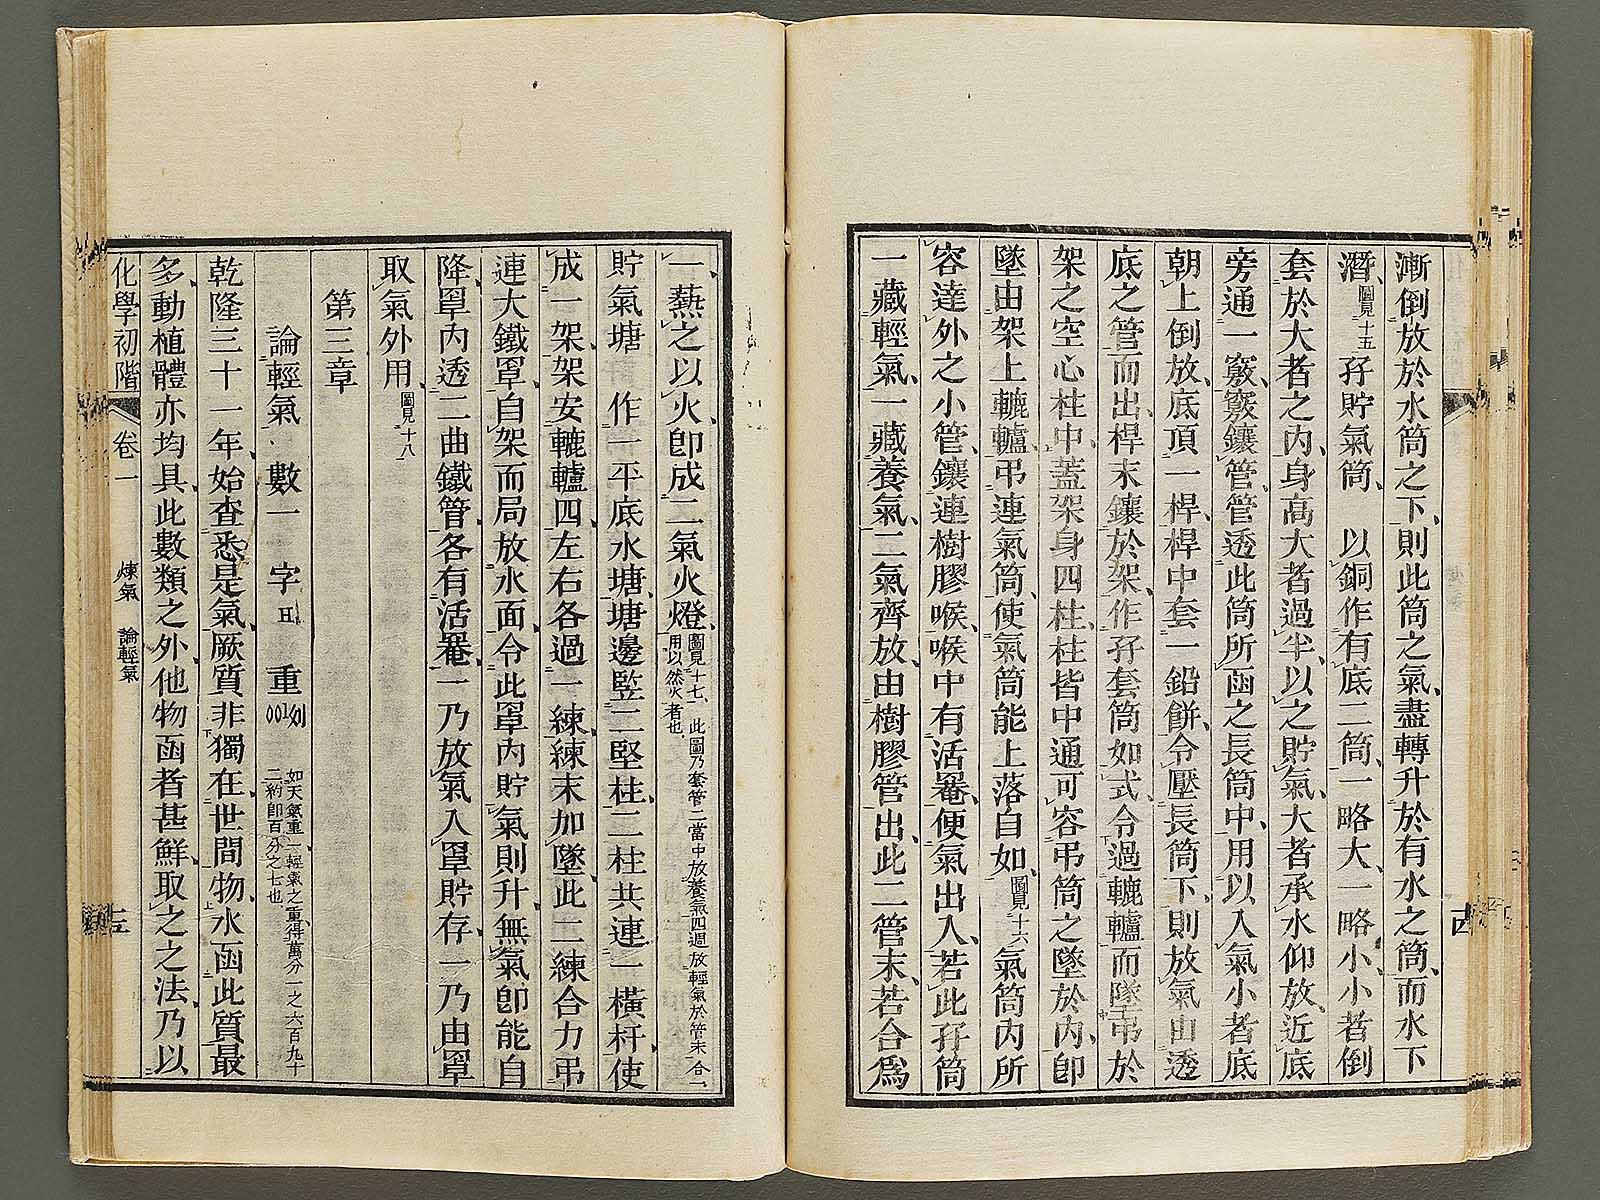 漸倒放於水筒之下、則此筒之氣、盡轉升於有水之筒、而水下
潛、圖見十五 孖貯氣筒 以銅作有底二筒、一略大、一略小、小者倒
套於大者之內、身高大者過半、以之貯氣、大者承水仰放、近底
旁通一竅、竅鑲管、管透此筒所函之長筒中、用以入氣、小者底
朝上倒放、底頂一桿、桿中套一鉛餅、令壓長筒下、則放氣由透
底之管而出、桿末鑲於架、作孖套筒如式、令過轆轤而墜弔於
架之空心柱中、蓋架身四柱、柱皆中通可容弔筒之墜於內、卽
墜由架上轆轤、弔連氣筒、使氣筒能上落自如、圖見十六 氣筒內所
容達外之小管、鑲連樹膠喉、喉中有活罨、便氣出入、若此孖筒
一藏輕氣、一藏養氣、二氣齊放、由樹膠管出、此二管末、若合爲
一、爇之以火、卽成二氣火燈、圖見十七、此圖乃套管二當中放養氣四週放輕氣於管末合一用以然火者也
貯氣塘 作一平底水塘、塘邊豎二堅柱、二柱共連一橫杆、使
成一架、架安轆轤四、左右各過一練、練末加墜、此二練合力弔
連大鐵罩、自架而局放水面、令此罩內貯氣則升、無氣卽能自
降、罩內透二曲鐵管、各有活罨、一乃放氣入罩貯存、一乃由罩
取氣外用、圖見十八
第三章
論輕氣 數一 字H 重001 如天氣重一輕氣之重得萬分一之六百九十二約卽百分之七也
乾隆三十一年、始查悉是氣、厥質非獨在世間物、水函此質最
多、動植體亦均具、此數類之外、他物函者甚鮮、取之之法、乃以
化學初階 卷一 煉氣 論輕氣